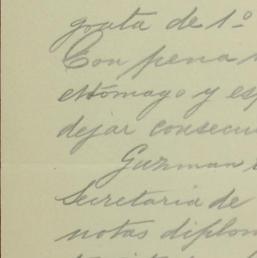 grata de 1º
Con pena
estómago y esp
dejar consecu
Guzman
Secretaria de
notas diplom